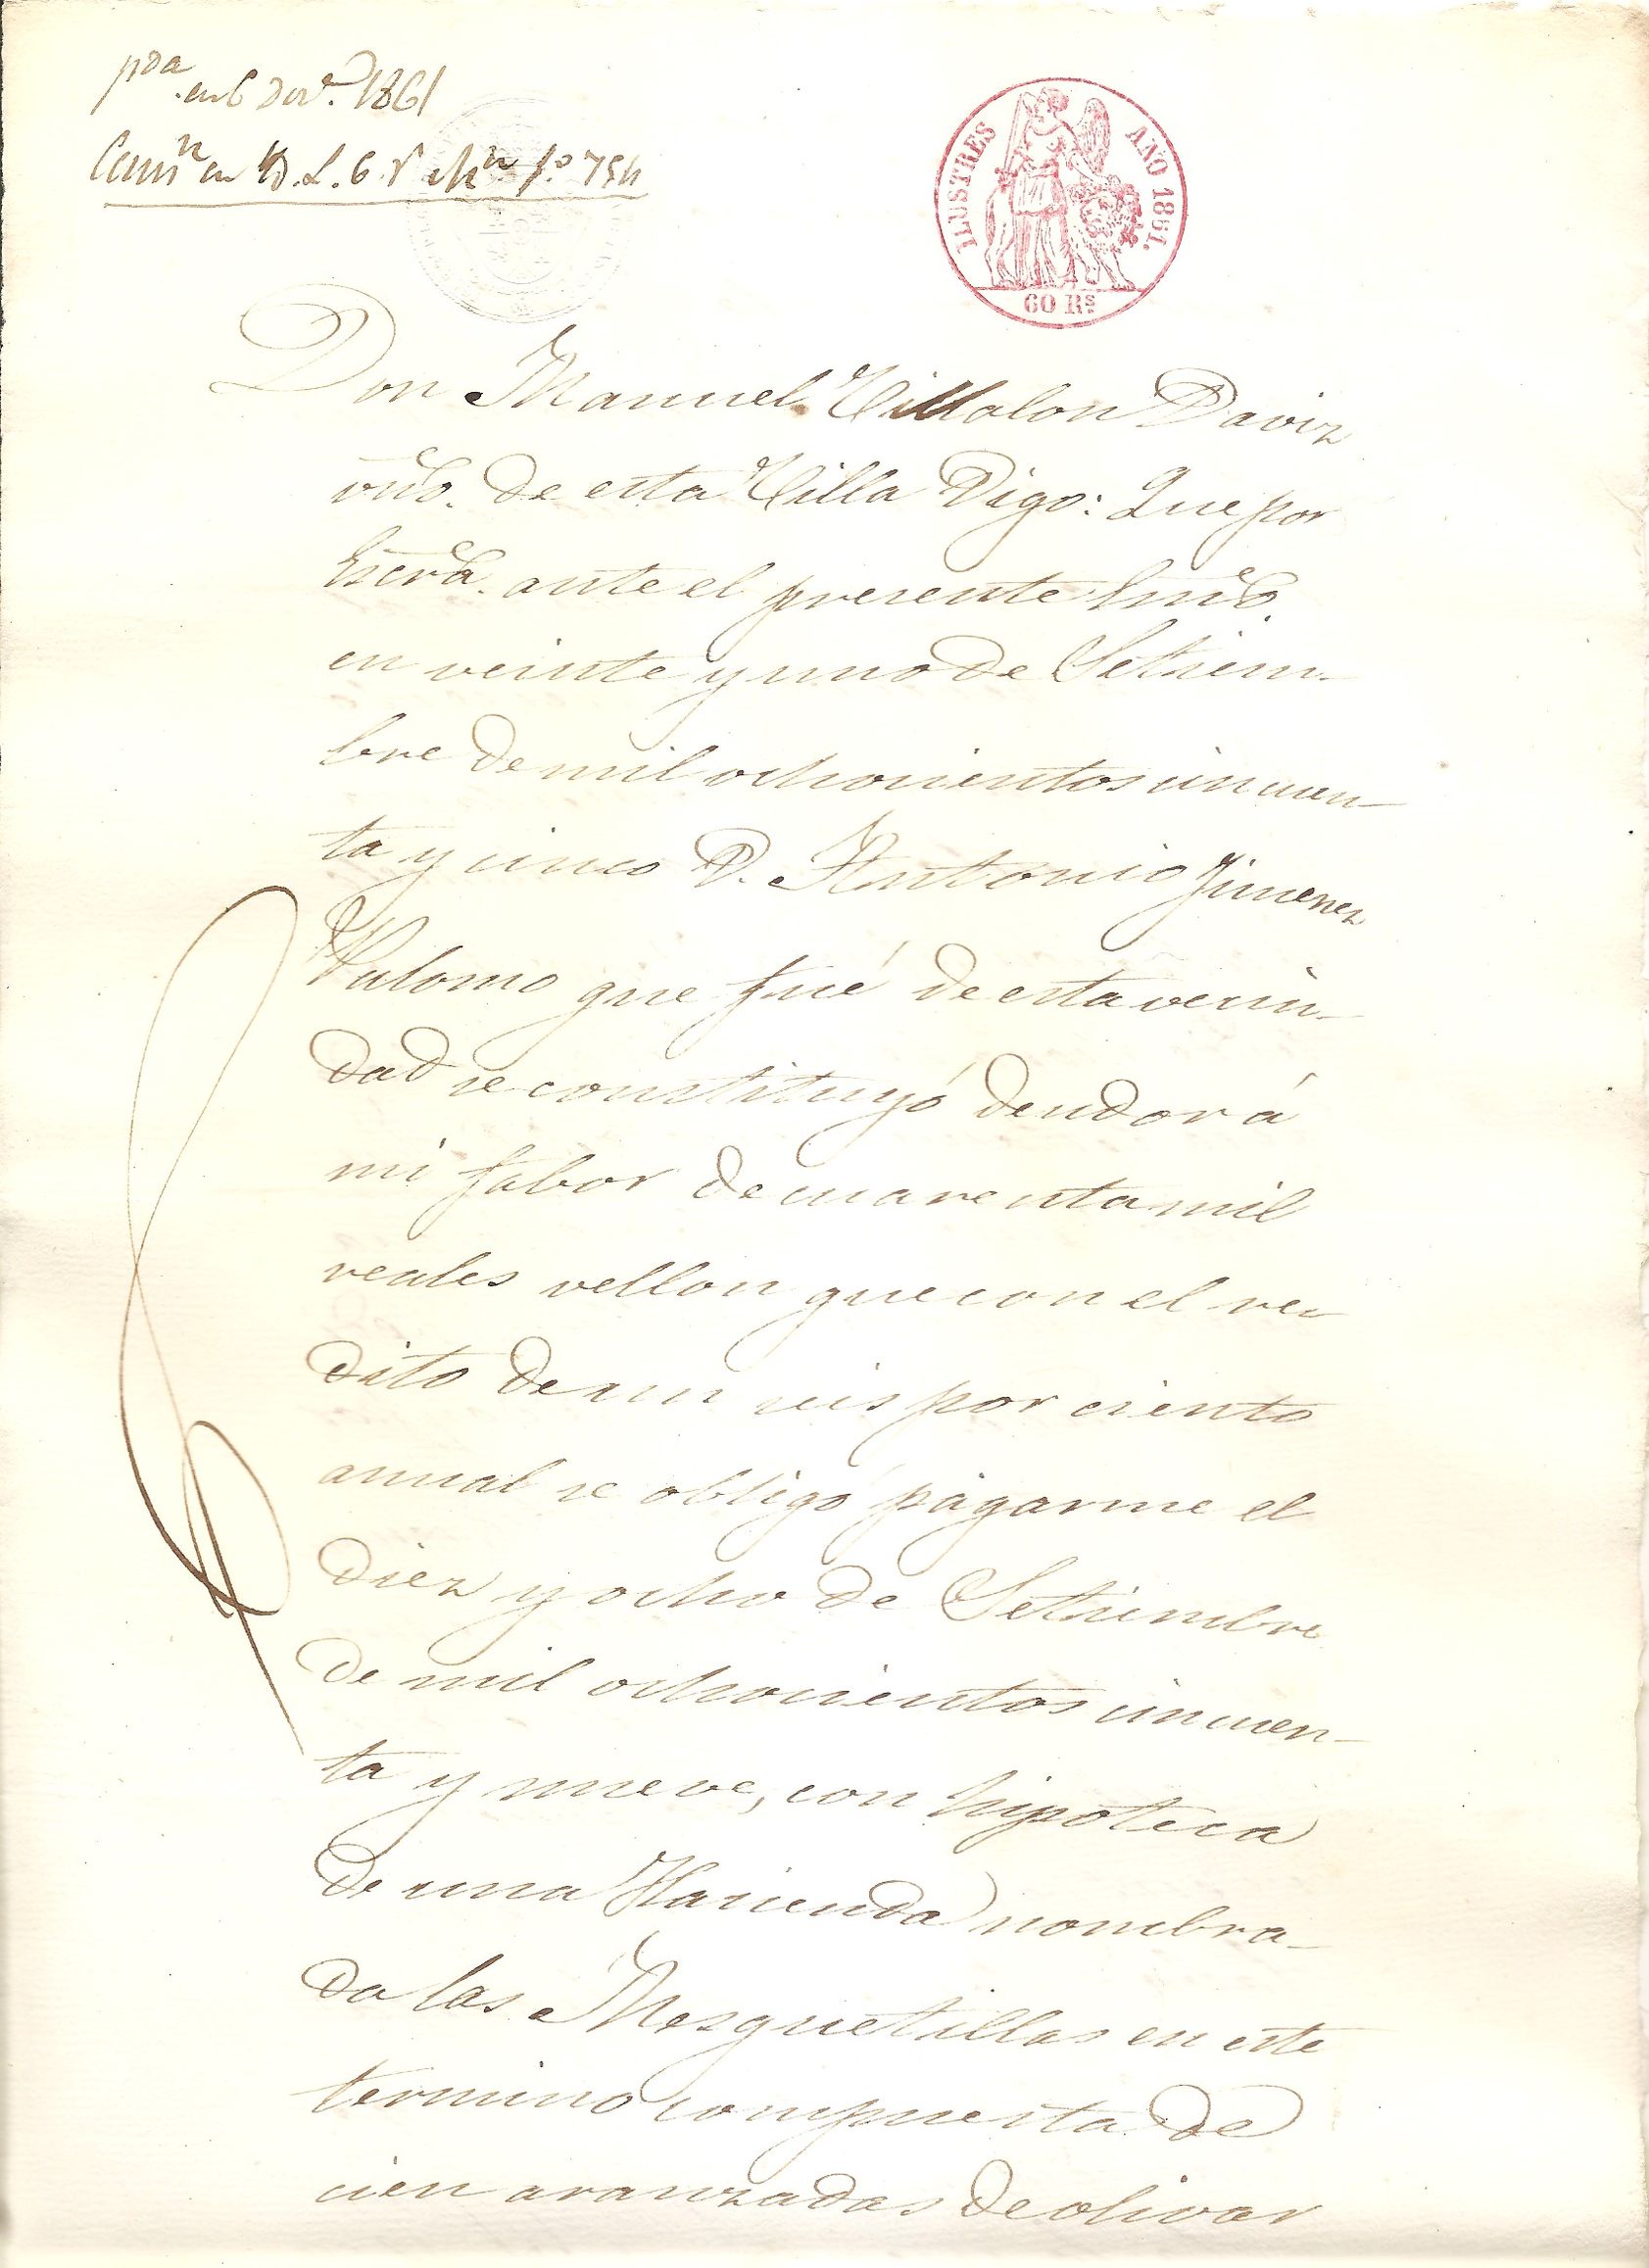 pda en 6 Nov.e 1861
en D. L. 6. fo 754
ILUSTRES AÑO 1861.
60 Rs
Don Manuel Villalon Daviz
vno. de esta Villa Digo: Que por
Escra. ante el presente Essno.
en veinte y uno de Setiem-
bre de mil ochocientos cincuen-
ta y cinco D. Antonio Jimenez
Palomo que fué de esta vecin-
dad se constituyó deudor á
mi fabor de cuarenta mil
reales vellon que con el re-
dito de un seis por ciento
anual se obligó pagarme el
diez y ocho de Setiembre
de mil ochocientos cincuen-
ta y nueve, con hipoteca
de una Hacienda nombra-
da las Mezquetillas en este
termino compuesta de
cien aranzadas de olivar